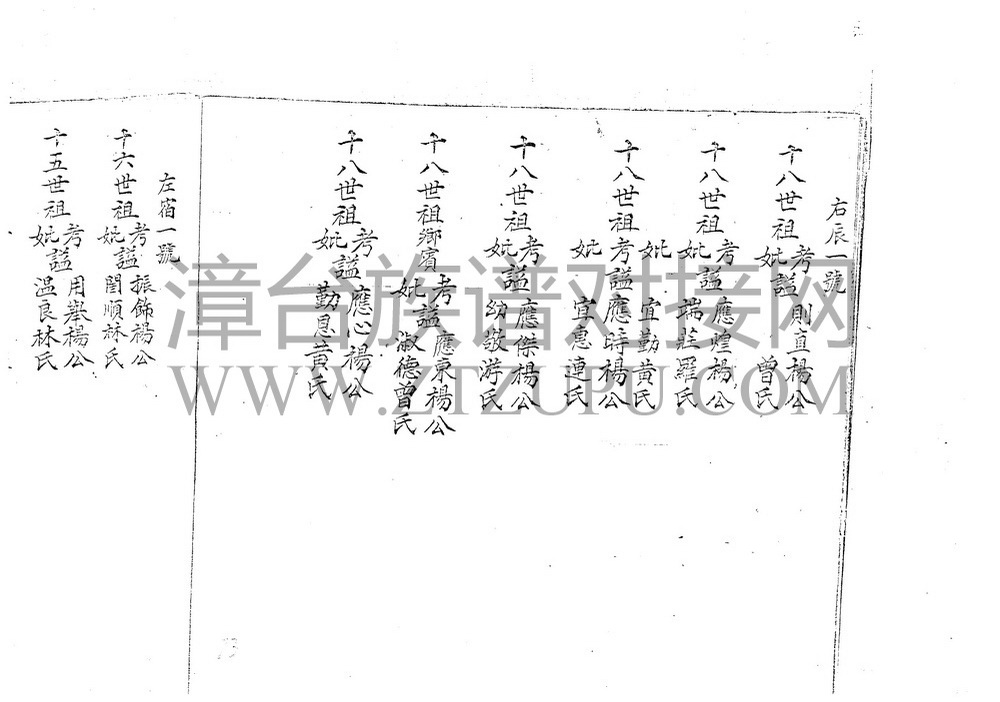 右辰一號
十八世祖考謚則直楊公
妣 曾氏
十八世祖考謚應煌楊公
妣 端莊羅氏
妣 宜勤黃氏
十八世祖考謚應時楊公
妣 宜惠連氏
十八世祖考謚應傑楊公
妣 幼敬游氏
十八世祖鄉賓考謚應東楊公
妣 淑德曾氏
十八世祖考謚應心楊公
妣 勤息黃氏
左宿一號
十六世祖考謚振飾楊公
妣 閨順林氏
十五世祖考謚用舉楊公
妣 温良林氏
漳台族谱对接网
WWW.ZTZUPU.COM